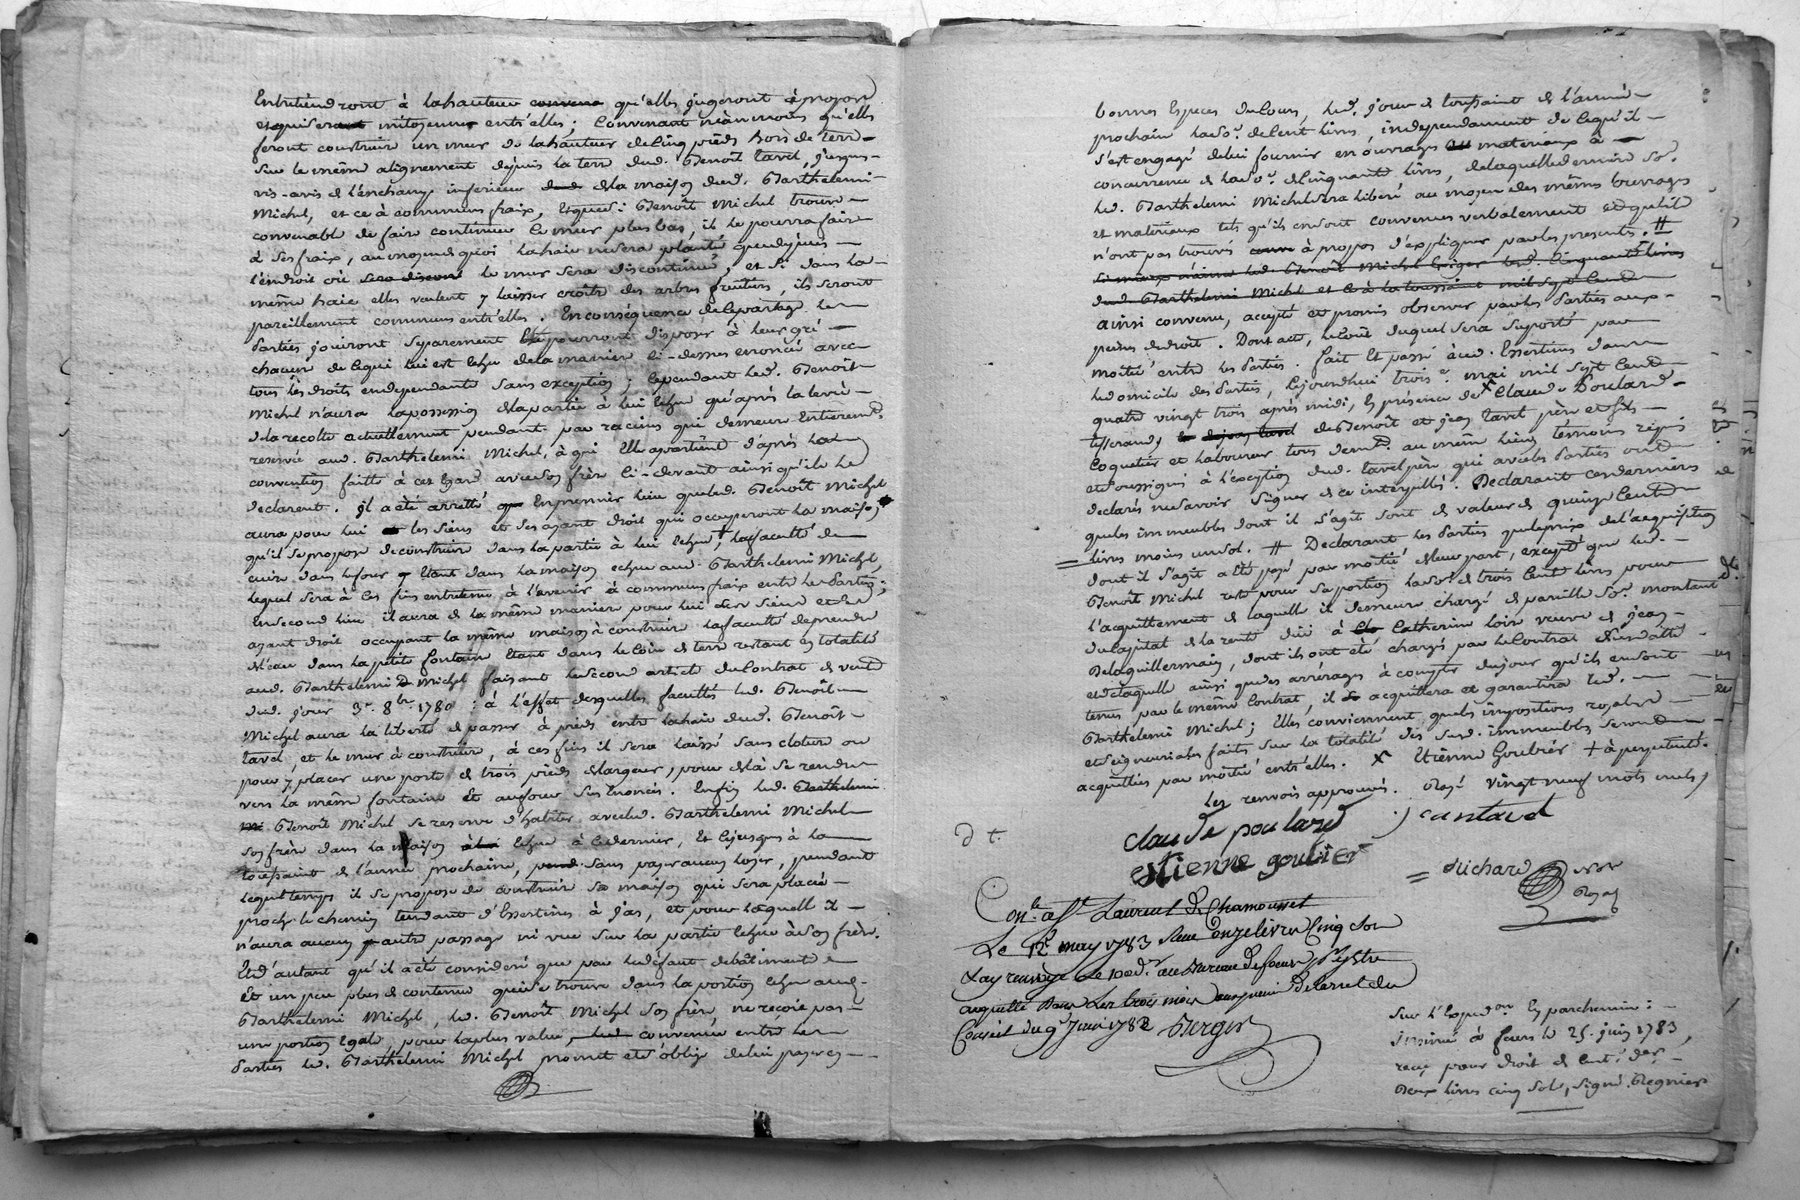 Entretiendront à la hauteur convenue qu'elles jugeront à propos
et qui sera mitoyenne entr'elles ; Convenant néanmoins qu'elles
feront construire un mur de la hauteur de cinq pieds hors de terre
sur le même alignement depuis la terre dud. Benoît tavel, jusques
vis-avis de l'enchamp inferieur de la maison dud. Barthelemi
Michel, et ce à communs fraix, et que si Benoît Michel trouve
convenable de faire continuer le mur plus bas, il le pourra faire
à ses fraix, au moyen de quoi la haie ne sera plantée que depuis
l'endroit où sera discont le mur sera discontinué, et si dans la
même haie elles veulent y laisser croître des arbres fruitiers, ils seront
pareillement communs entr'elles. En conséquence de ce partage les
Parties jouiront separement et pourront disposer à leur gré
chacun de ce qui lui est echu de la maniere ci-dessus enoncée avec
tous les droits en dependants sans exception ; cependant led. Benoît
Michel n'aura la possession de la partie à lui echue qu'après la levée
de la recolte actuellement pendante par racines qui demeure entierem.t
reservée aud. Barthelemi Michel, à qui elle apartient d'après la
convention faite à cet egard avec son frère ci-devant ainsi qu'ils le
declarent. Il a été arretté en premier lieu que led. Benoît Michel
aura pour lui les siens et ses ayant droit qui occuperont la maison
qu'il se propose de construire dans la partie à lui echue, + la faculté de
cuire dans le four etant dans la maison echue aud. Barthelemi Michel,
lequel sera à ces fins entretenu à l'avenir à communs fraix entre les Parties ;
En second lieu, il aura de la même maniere pour lui les siens et les
ayant droit occupant la même maison à construire la faculté de prendre
de l'eau dans la petite fontaine etant dans le coin de terre restant en totalité
aud. Barthelemi Michel faisant le second article du Contrat de vente
dud. jour 3e 8bre 1780 : à l'effet desquelles facultés led. Benoît
Michel aura la liberté de passer à pieds entre la haie dud. Benoît
tavel, et le mur à construire, à ces fins il sera laissé sans cloture ou
pour y placer une porte de trois pieds de largeur, pour de là se rendre
vers la même fontaine et au four sus enoncés. Enfin led. Barthelemi
Benoît Michel se reserve d'habiter avec led. Barthelemi Michel
son frère dans la maison echue à ce dernier, et ce jusques à la
toussaint de l'année prochaine, sans payer aucun loyer, pendant
lequel temps il se propose de construire sa maison qui sera placée
proche le chemin tendant d'Essertines à Jas, et pour laquelle il
n'aura aucun autre passage ni vue sur la partie echue à son frère.
Et d'autant qu'il a été consideré que par le défaut de bâtiment
et un peu plus de contenue qui se trouve dans la portion echue aud.
Barthelemi Michel, led. Benoît Michel son frère, ne reçoit pas
une portion egale, pour la plus value, convenue entre les
Parties led. Barthelemi Michel promet et s'oblige de lui payer en
bonnes Especes du Cours, led. jour de toussaint de l'année
prochaine la so.e de Cent livres, independament de ce qu'il
s'est engagé de lui fournir en ouvrages ou materiaux à
concurrence de la so.e de Cinquante livres, de laquelle derniere so.e
led. Barthelemi Michel sera libéré au moyen des mêmes ouvrages
et matériaux tels qu'ils en sont convenus verbalement et qu'ils
n'ont pas trouvés à propos d'expliquer par les presentes. #
dud. Barthelemi Michel
ainsi convenu, accepté et promis observer par les Parties aux
peines de droit. Dont acte, le coût duquel sera suporté par
moitié entre les Parties. fait et passé aud. Essertines dans
le domicile des Parties, Cejourdhui trois.e mai mil sept cent
quatre vingt trois après midi, en présence de x Claude Poulard
tisserand, de Benoît et jean tavel père et fils
Coquetier et laboureur tous dem.t au même lieu, temoins requis
et soussignés à l'exception dud. tavel père qui avec les Parties ont
declaré ne savoir signer de ce interpellés. Declarant ces dernieres
que les immeubles dont il s'agit sont de valeur de quinze Cent
livres moins un sol. # Declarant les Parties que le prix de l'acquisition
dont il s'agit a été payé par moitié de leur part, excepté que led.
Benoît Michel reste pour sa portion la so.e de trois Cent livres pour
l'acquittement de laquelle il demeure chargé de pareille so.e montant
du Capital de la rente due à Catherine loire veuve de jean
Delaguillermain, dont ils ont été chargés par le Contrat susdatté
et de laquelle ainsi que des arrérages à compter du jour qu'ils en sont
tenus par le même Contrat, il acquittera et garantira led.
Barthelemi Michel ; Elles conviennent que les impositions royales
et seigneuriales faites sur la totalité des sud. immeubles seront
acquittées par moitié entr'elles. x Etienne Goubier + à perpetuité.
Les renvois approuvés. Rayé vingt neuf mots nuls,
claude poulard
j tavel
estienne goubier
Richard
No.re
Royal
D t.
Con.le à St Laurent De Chamousset
Le 12 may 1783 Reçu onze livres Cinq sols
au Bureau de feurs
acquitté Dans Les trois mois
Conseil du 9 juin 1782 Berger
Sur l'Exped.on En parchemin :
insinué à feurs le 25. juin 1783,
reçu pour droit de cent.e den.
Deux livres cinq sols, signé. Regnier